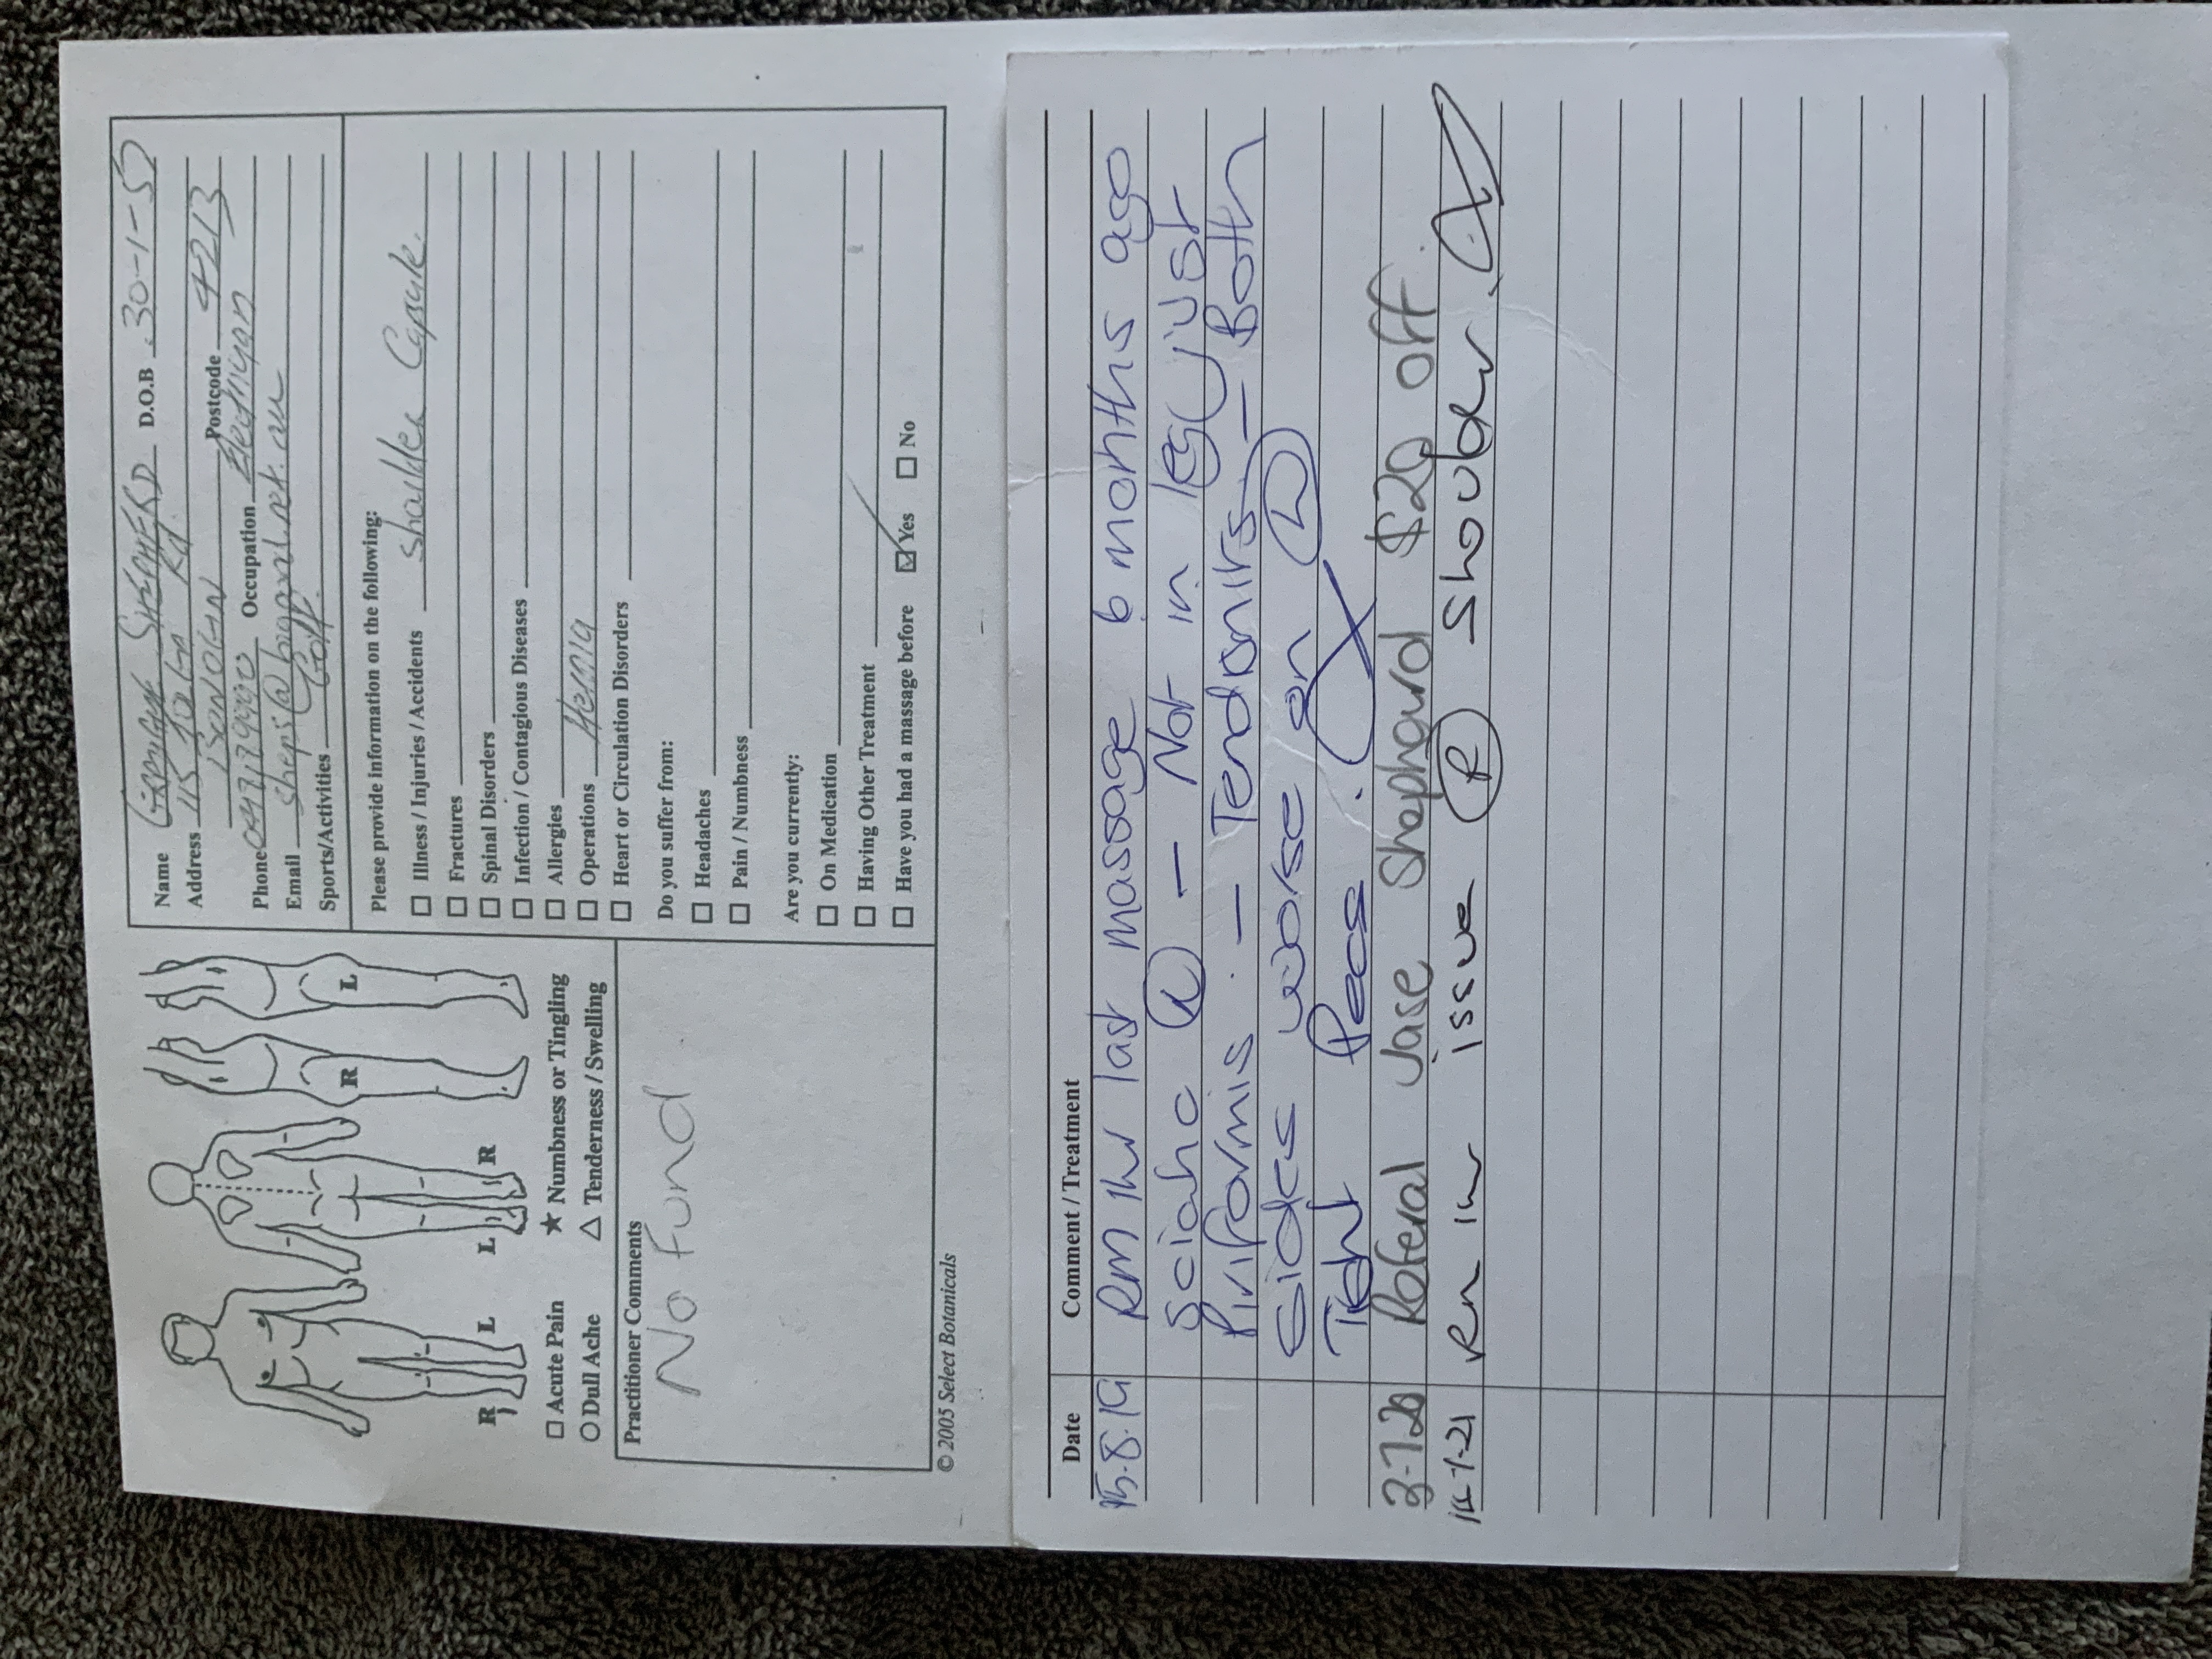 Name SHEPHERD D.O.B 30-1-5
Address 115 Rd
Postcode 4213
Phone Occupation
Email sheps@bigpond.net.au
Sports/Activities Golf
Please provide information on the following:
Illness / Injuries / Accidents Shoulder Capsule.
Fractures
Spinal Disorders
Infection / Contagious Diseases
Allergies
Operations Hernia
Heart or Circulation Disorders
Do you suffer from:
Headaches
Pain / Numbness
Are you currently:
On Medication
Having Other Treatment
Have you had a massage before Yes No
R L L R R L
Acute Pain ★ Numbness or Tingling
Dull Ache △ Tenderness / Swelling
Practitioner Comments
No Fund
© 2005 Select Botanicals
Date Comment / Treatment
15.8.19 Rm 1hr last massage 6 months ago
L - Not in leg just
Piriformis - - Both
sides worse on L
Pecs.
Referal Jase Shephard $20 off
1-21 Rm 1hr issue R Shoulder